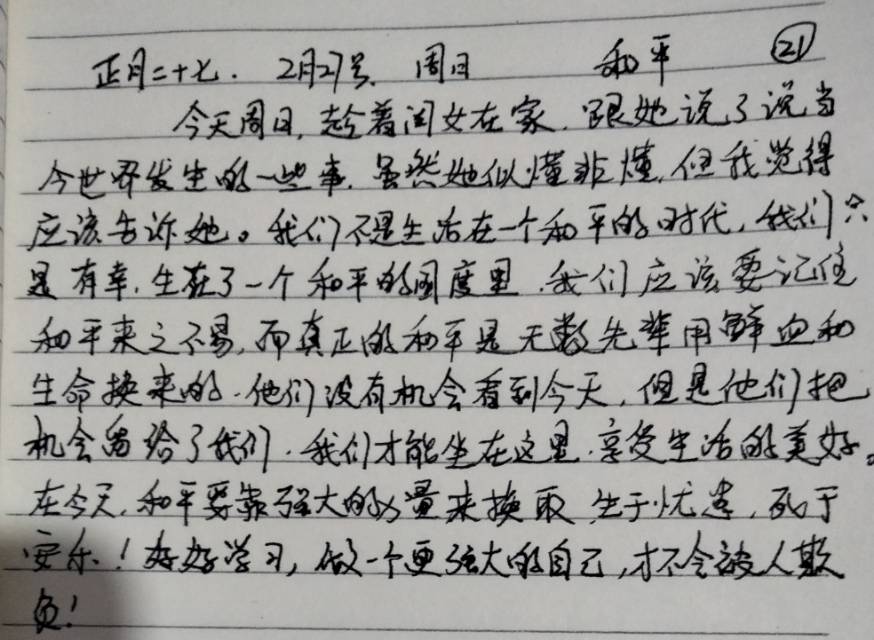 正月二十七. 2月27号. 周日 和平 21
今天周日, 趁着闺女在家. 跟她说了说当
今世界发生的一些事. 虽然她似懂非懂, 但我觉得
应该告诉她。我们不是生活在一个和平的时代, 我们只
是有幸. 生在了一个和平的国度里. 我们应该要记住
和平来之不易, 而真正的和平是无数先辈用鲜血和
生命换来的. 他们没有机会看到今天, 但是他们把
机会留给了我们. 我们才能坐在这里. 享受生活的美好。
在今天, 和平要靠强大的力量来换取. 生于忧患, 死于
安乐! 好好学习, 做一个更强大的自己, 才不会被人欺
负!